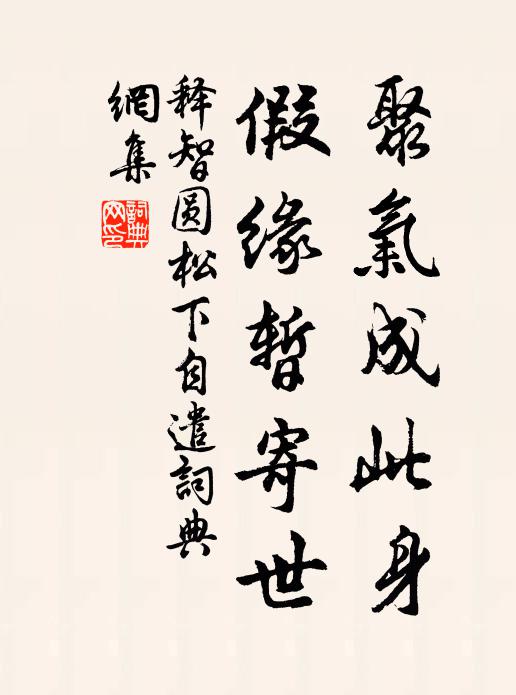 聚氣成此身
假缘暫寄世
释智圆松下自遣詞典
網集
詞典
网印